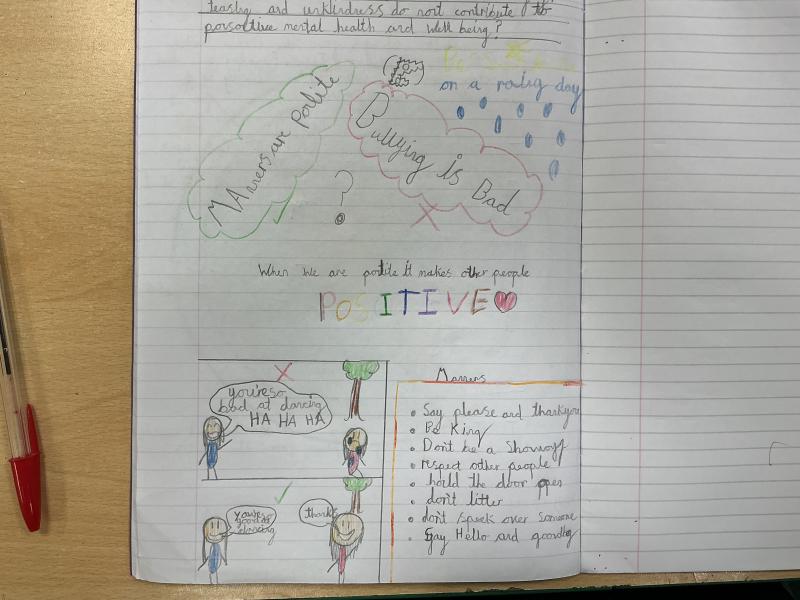 teasing and unkindness do nort contribute to
porsoitive mental health and well being?
MAnners are Porlite
Bullying is Bad
on a rainy day
?
When we are portile it makes other people
POSITIVE
you're so
bad at dancing
HA HA HA
you're
good at
dancing
thanks
Manners
Say please and thankyou
Be King
Don't be a Showoff
respect other people
hould the door open
don't litter
don't speck over someone
Say Hello and goodbye